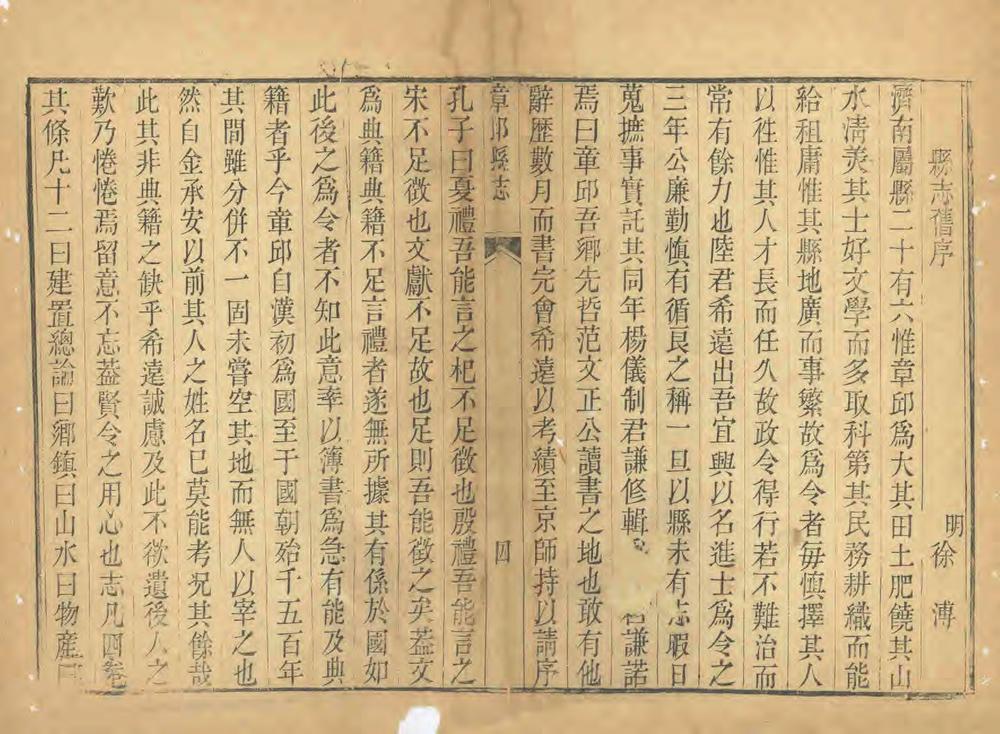 縣志舊序
明徐溥
濟南屬縣二十有六惟章邱爲大其田土肥饒其山
水清美其士好文學而多取科第其民務耕織而能
給租庸惟其縣地廣而事繁故爲令者每慎擇其人
以徃惟其人才長而任久故政令得行若不難治而
常有餘力也陸君希遠出吾宜興以名進士爲令之
三年公廉勤慎有循良之稱一旦以縣未有志暇日
蒐摭事實託其同年楊儀制君謙修輯 君謙諾
焉曰章邱吾鄉先哲范文正公讀書之地也敢有他
辭歷數月而書完會希遠以考績至京師持以請序
章邱縣志 四
孔子曰夏禮吾能言之杞不足徵也殷禮吾能言之
宋不足徵也文獻不足故也足則吾能徵之矣葢文
爲典籍典籍不足言禮者遂無所據其有係於國如
此後之爲令者不知此意率以簿書爲急有能及典
籍者乎今章邱自漢初爲國至于國朝殆千五百年
其間雖分併不一固未嘗空其地而無人以宰之也
然自金承安以前其人之姓名已莫能考况其餘哉
此其非典籍之缺乎希遠誠慮及此不欲遺後人之
歎乃惓惓焉留意不忘葢賢令之用心也志凡四卷
其條凡十二曰建置總論曰鄉鎮曰山水曰物產曰